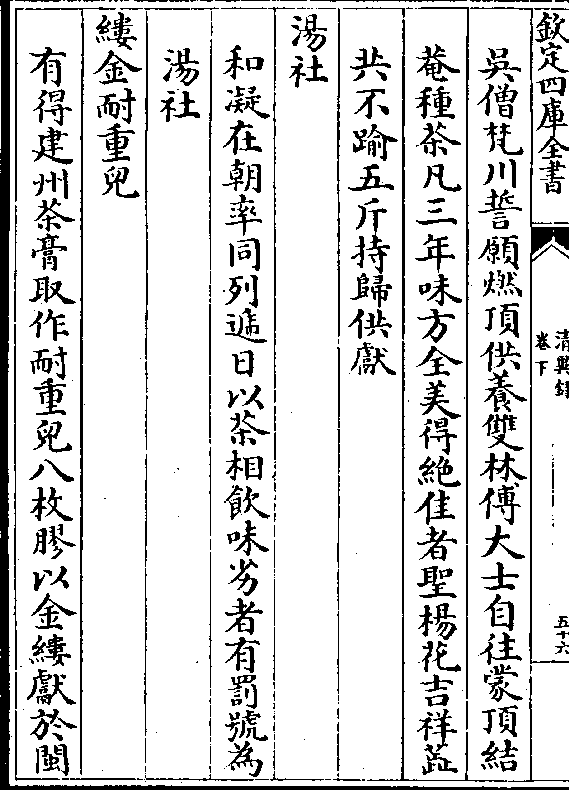 欽定四庫全書
清異録
卷下
五十六
吳僧梵川誓願燃頂供養雙林傅大士自往蒙頂結
菴種茶凡三年味方全美得絶佳者聖楊花吉祥蘂
共不踰五斤持歸供獻
湯社
和凝在朝率同列遞日以茶相飲味劣者有罰號為
湯社
縷金耐重兒
有得建州茶膏取作耐重兒八枚膠以金縷獻於閩